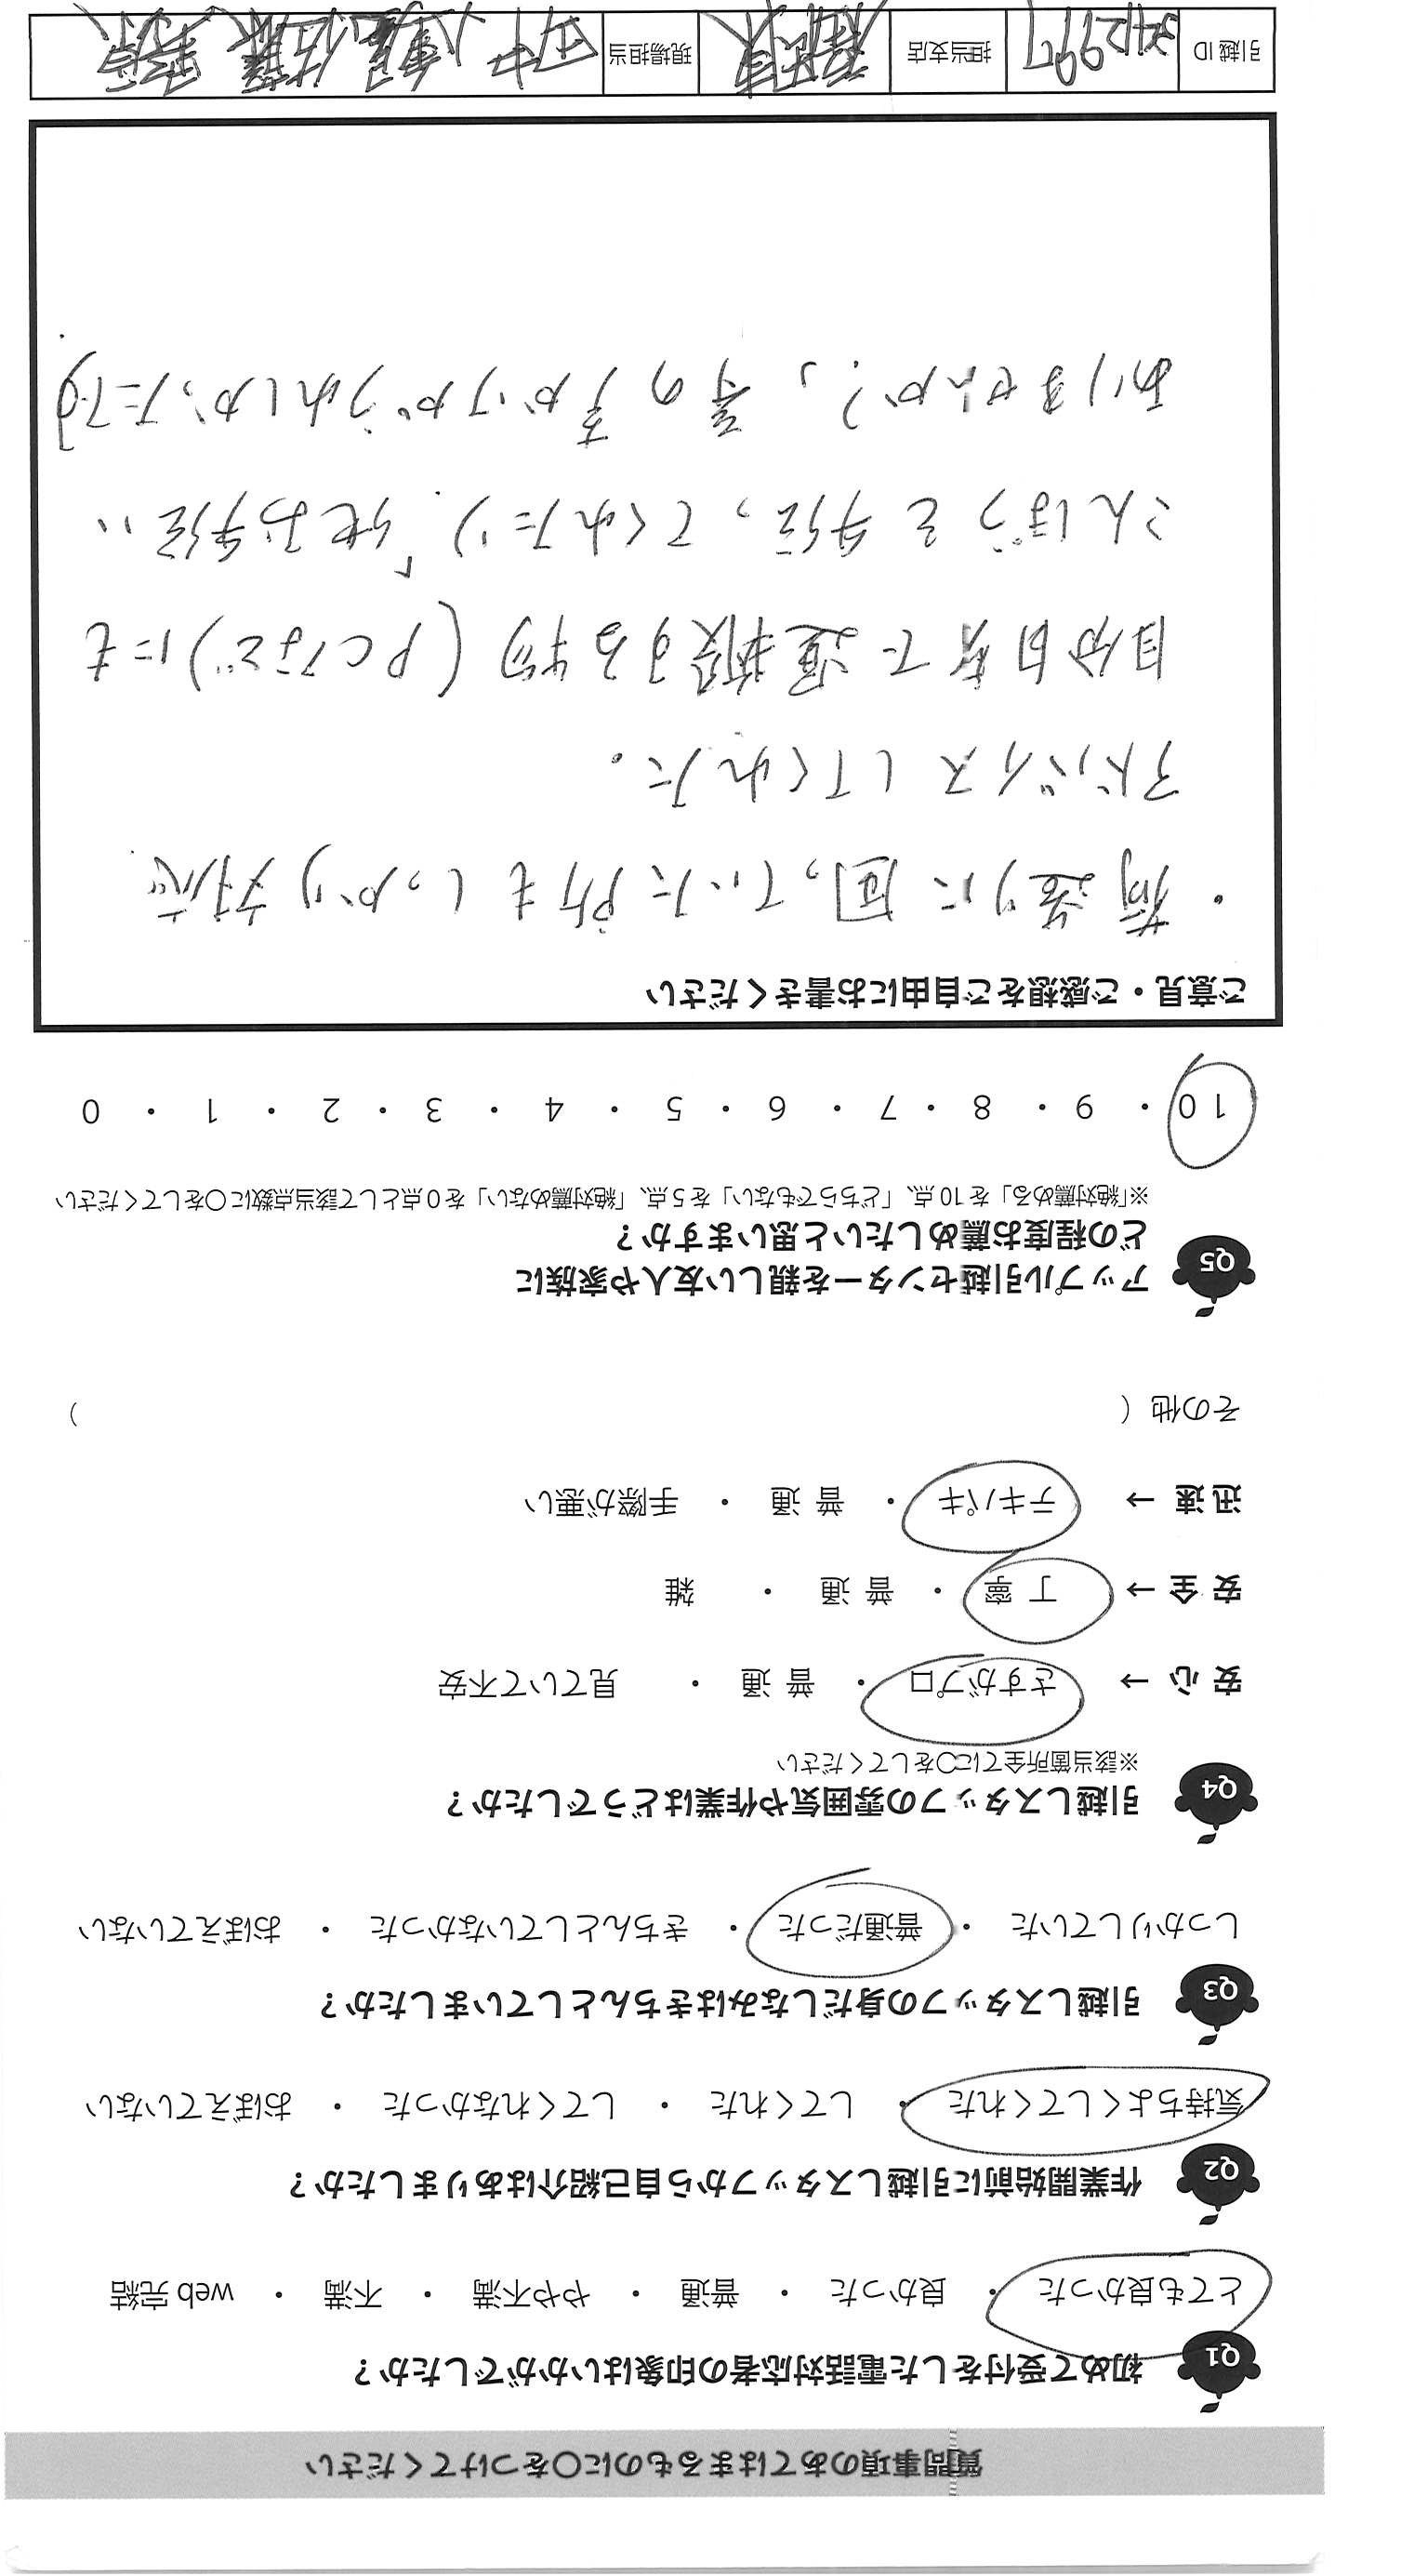 質問事項のあてはまるものに〇をつけてください
Q1 初めて受付をした電話対応者の印象はいかがでしたか？
とても良かった ・ 良かった ・ 普通 ・ やや不満 ・ 不満 ・ web完結
Q2 作業開始前に引越しスタッフから自己紹介はありましたか？
気持ちよくしてくれた ・ してくれた ・ してくれなかった ・ おぼえていない
Q3 引越しスタッフの身だしなみはきちんとしていましたか？
しっかりしていた ・ 普通だった ・ きちんとしていなかった ・ おぼえていない
Q4 引越しスタッフの雰囲気や作業はどうでしたか？
※該当箇所全てに〇をしてください
安心 → さすがプロ ・ 普通 ・ 見ていて不安
安全 → 丁寧 ・ 普通 ・ 雑
迅速 → テキパキ ・ 普通 ・ 手際が悪い
その他（ ）
Q5 アップル引越センターを親しい友人や家族に
どの程度お薦めしたいと思いますか？
※「絶対薦める」を10点、「どちらでもない」を5点、「絶対薦めない」を0点として該当点数に〇をしてください
10 ・ 9 ・ 8 ・ 7 ・ 6 ・ 5 ・ 4 ・ 3 ・ 2 ・ 1 ・ 0
ご意見・ご感想をご自由にお書きください
・荷造りに困っていた所もしっかり対応
アドバイスしてくれた。
自分自身で運搬する物(PCなど)にも
こんぽうを手伝ってくれたり、「他お手伝い
ありませんか？」等の声かけがうれしかったです
引越ID 担当支店 現場担当 佐藤